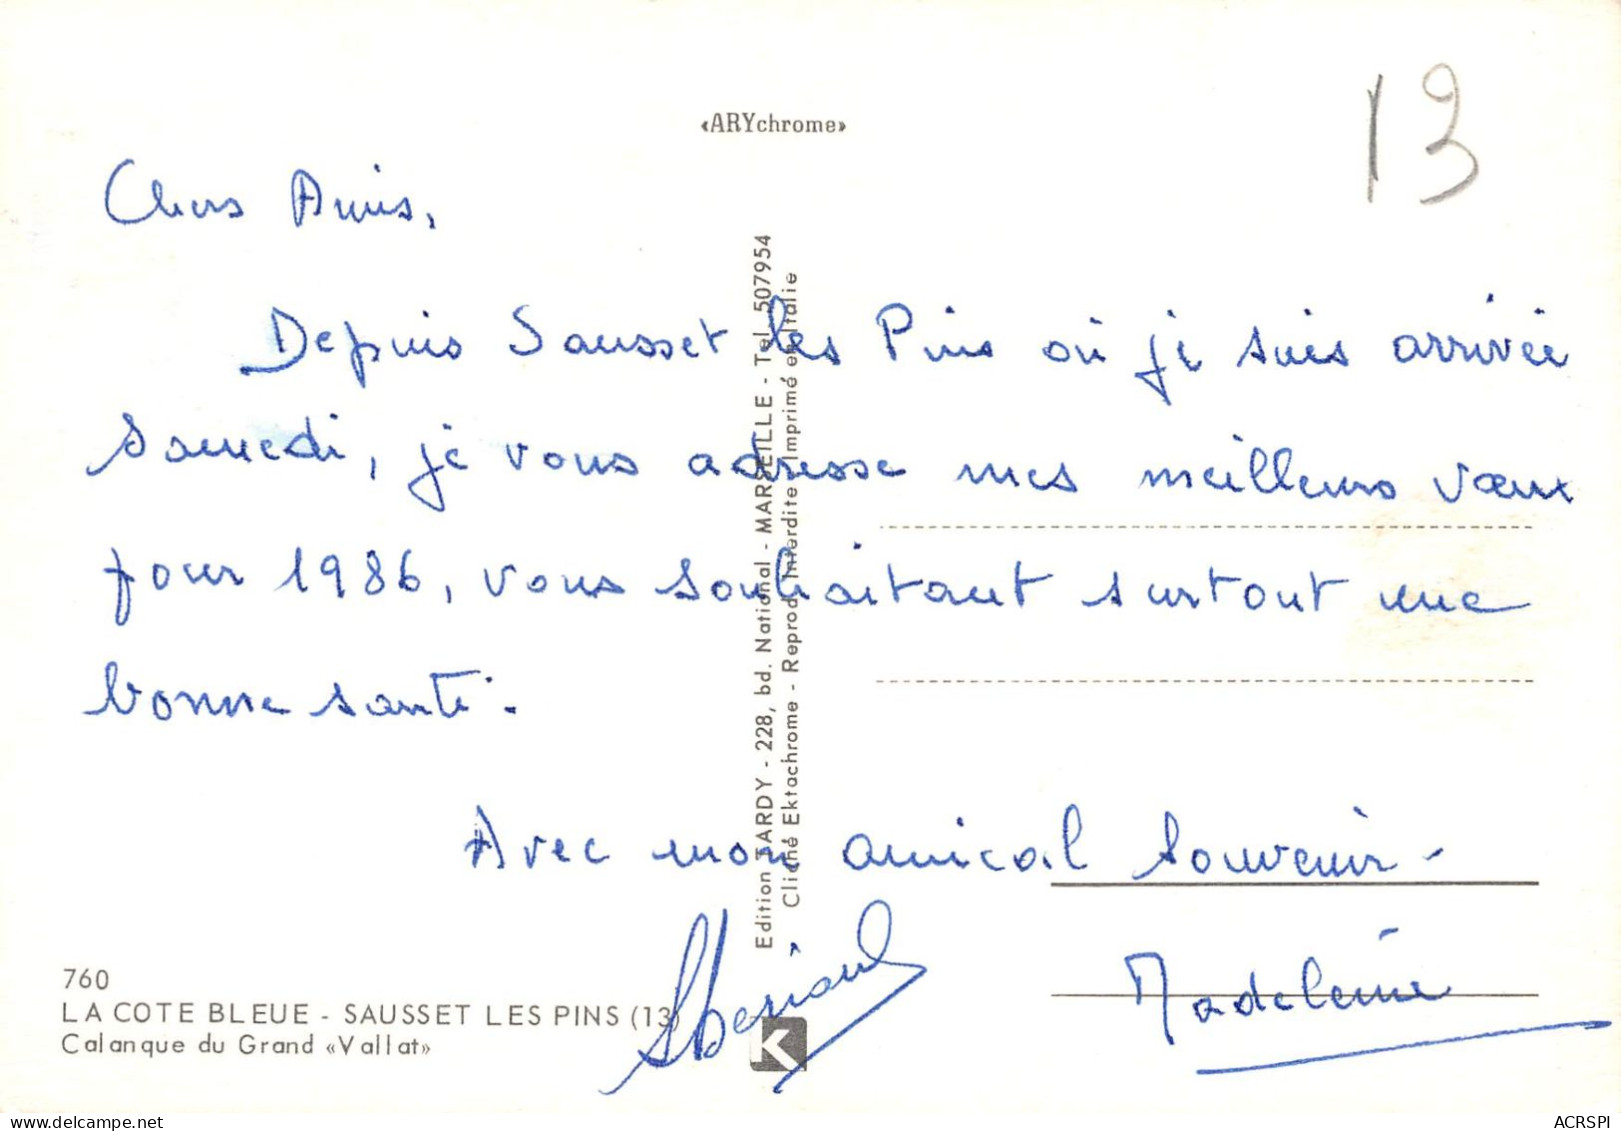 «ARYchrome»
13
Chers Amis,
Depuis Sausset les Pins où je suis arrivée
samedi, je vous adresse mes meilleurs vœux
pour 1986, vous souhaitant surtout une
bonne santé.
Avec mon amical souvenir -
Madeleine
Edition TARDY - 228, bd. National - MARSEILLE - Tel. 507954
Cliché Ektachrome - Reprod. Interdite - Imprimé en Italie
760
LA COTE BLEUE - SAUSSET LES PINS (13)
Calanque du Grand «Vallat»
K
www.delcampe.net
ACRSPI